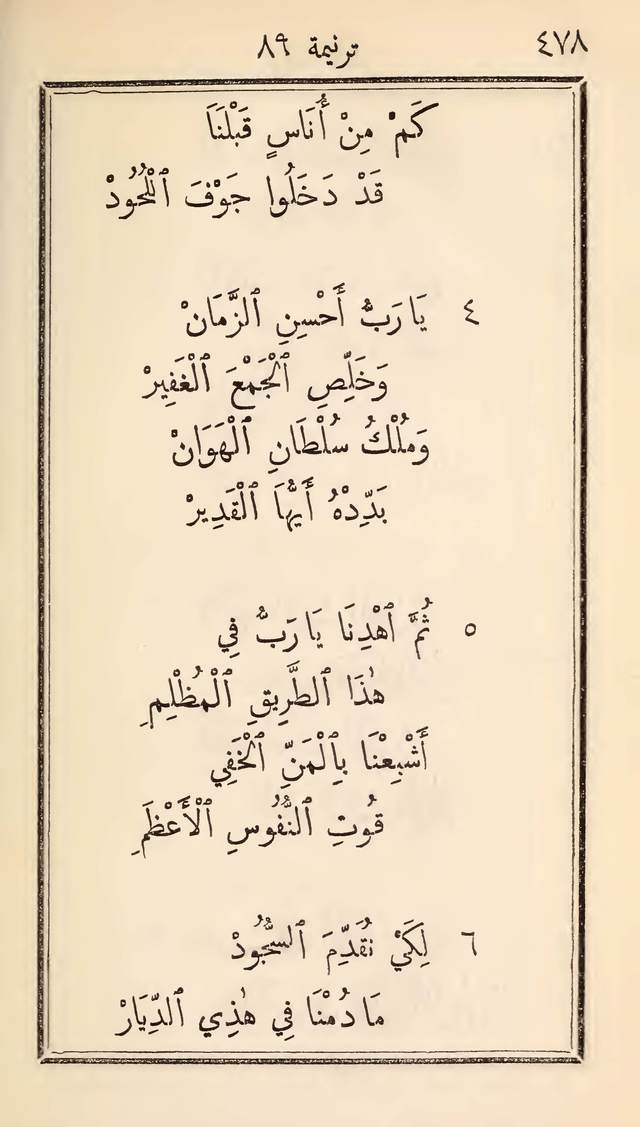 ٤٧٨ ترنيمة ٨٩
كَمْ مِنْ أُنَاسٍ قَبْلَنَا
قَدْ دَخَلُوا جَوْفَ ٱللُّحُودْ
٤ يَا رَبُّ أَحْسِنِ ٱلزَّمَانْ
وَخَلِّصِ ٱلْجَمْعَ ٱلْغَفِيرْ
وَمُلْكُ سُلْطَانِ ٱلْهَوَانْ
بَدِّدْهُ أَيُّهَا ٱلْقَدِيرْ
٥ ثُمَّ ٱهْدِنَا يَا رَبُّ فِي
هٰذَا ٱلطَّرِيقِ ٱلْمُظْلِمِ
أَشْبِعْنَا بِٱلْمَنِّ ٱلْخَفِي
قُوتِ ٱلنُّفُوسِ ٱلْأَعْظَمِ
٦ لِكَيْ نُقَدِّمَ ٱلسُّجُودْ
مَا دُمْنَا فِي هٰذِي ٱلدِّيَارْ